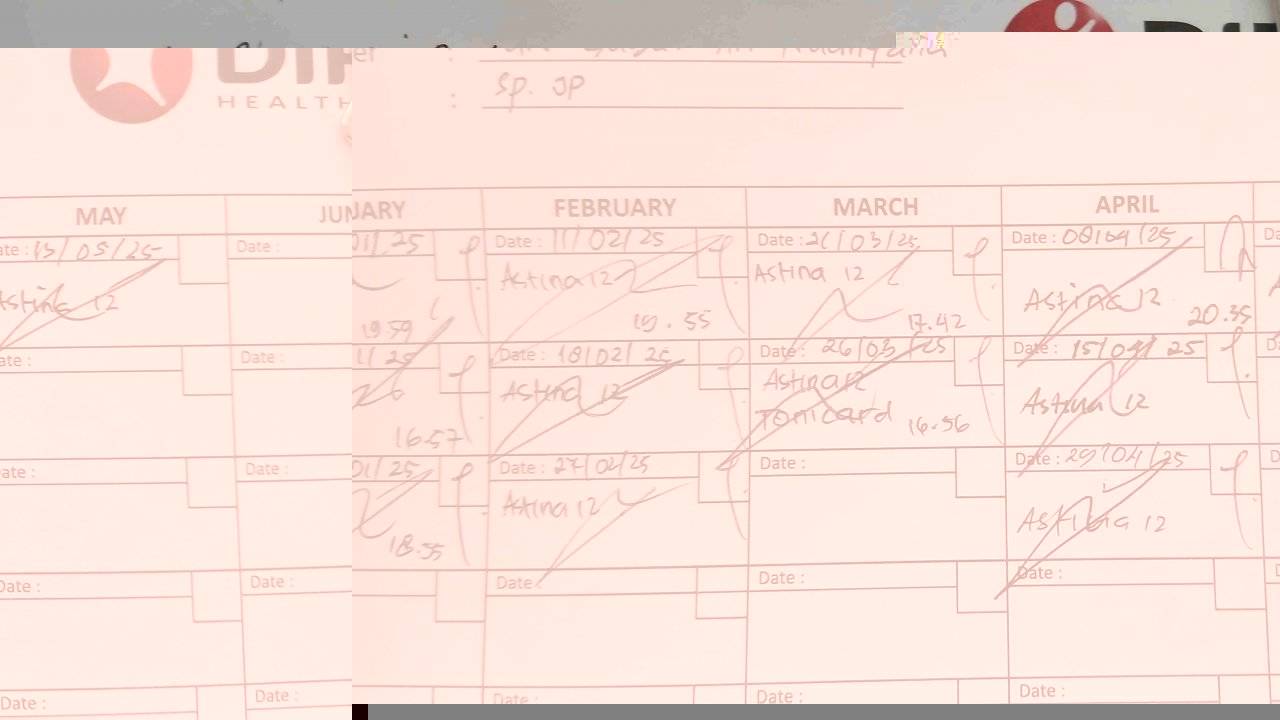 HEALTH
Sp. JP
MAY
JUN
UARY
FEBRUARY
MARCH
APRIL
Date : 13/05/25
Date :
01/25
Date : 11/02/25
Date : 21/03/25
Date : 08/04/25
Astina 12
19.59
Astina 12
19.55
Astina 12
17.42
Astina 12
20.35
Date :
Date :
Date : 18/02/25
Date : 26/03/25
Date : 15/04/25
16.57
Astina 12
Astina 12
Tonicard 16.56
Astina 12
Date :
Date :
01/25
Date : 27/02/25
Date :
Date : 29/04/25
18.55
Astina 12
Astina 12
Date :
Date :
Date
Date :
Date :
Date :
Date :
Date :
Date :
Date :